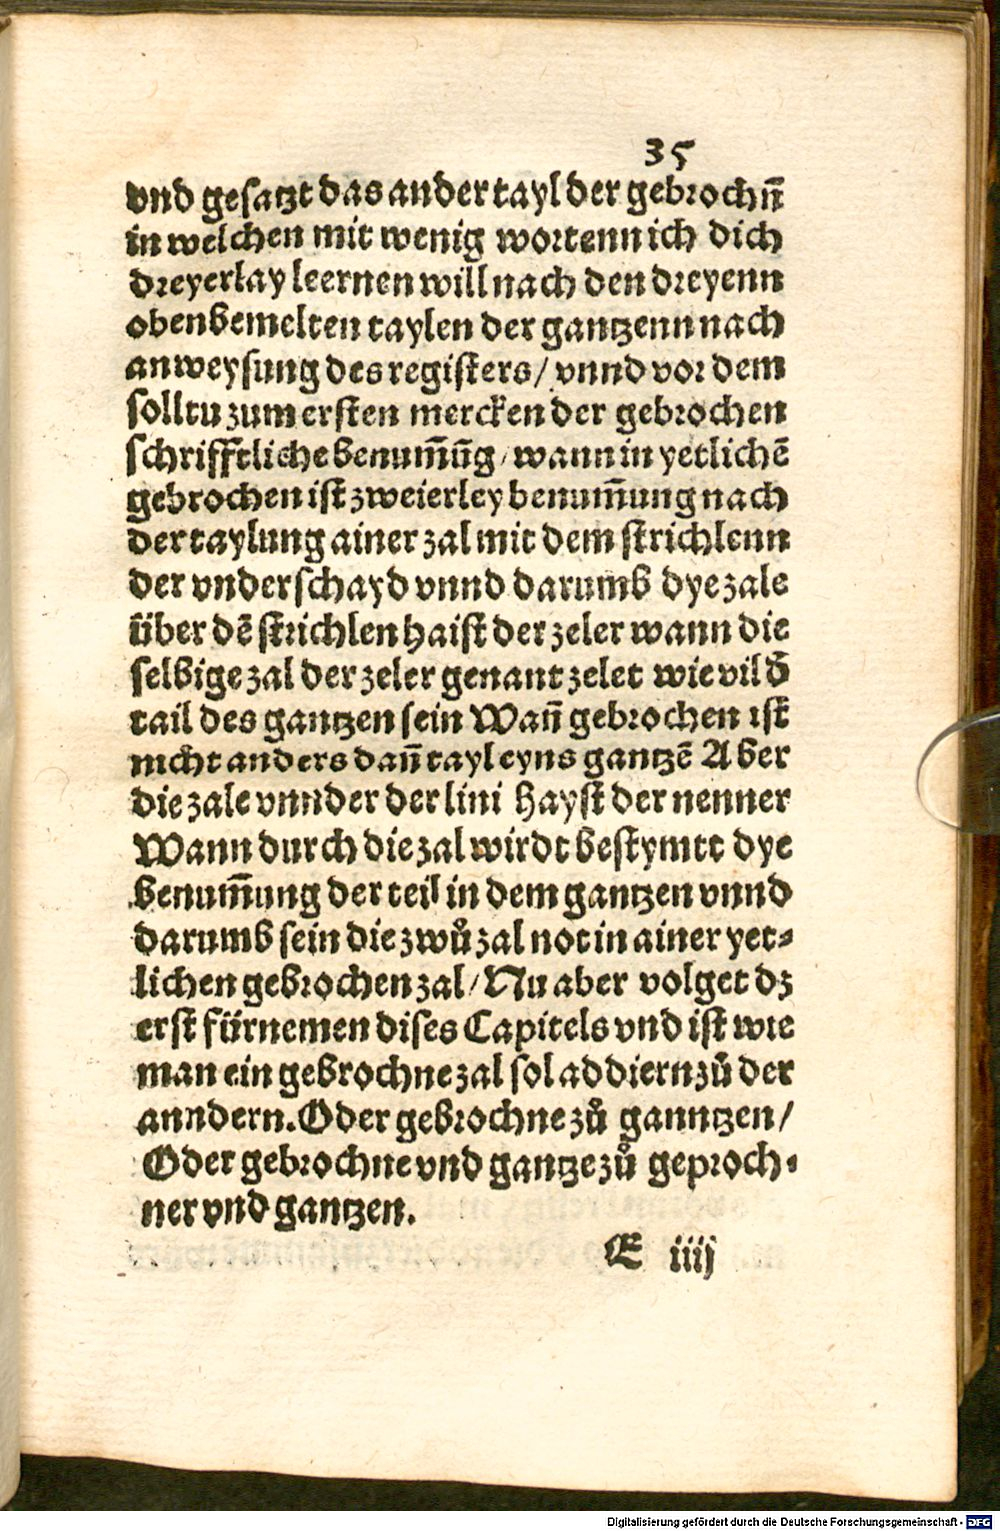 35
vnd gesatzt das ander tayl der gebrochñ
in welchen mit wenig wortenn ich dich
dreyerlay leernen will nach den dreyenn
obenbemelten taylen der gantzenn nach
anweysung des registers/ vnnd vor dem
solltu zum ersten mercken der gebrochen
schrifftliche benum̄ūg/ wann in yetlichē
gebrochen ist zweierley benum̄ung nach
der taylung ainer zal mit dem strichlenn
der vnderschayd vnnd darumb dye zale
über dē strichlen haist der zeler wann die
selbige zal der zeler genant zelet wie vil d̄
tail des gantzen sein Wan̄ gebrochen ist
nicht anders dan̄ tayl eyns gantzē Aber
die zale vnnder der lini hayst der nenner
Wann durch die zal wirdt bestymtt dye
benum̄ung der teil in dem gantzen vnnd
darumb sein die zwů zal not in ainer yet⸗
lichen gebrochen zal/ Nu aber volget dz
erst fürnemen dises Capitels vnd ist wie
man ein gebrochne zal sol addiern zů der
anndern. Oder gebrochne zů ganntzen/
Oder gebrochne vnd gantze zů geproch⸗
ner vnd gantzen.
E iiij
Digitalisierung gefördert durch die Deutsche Forschungsgemeinschaft - DFG